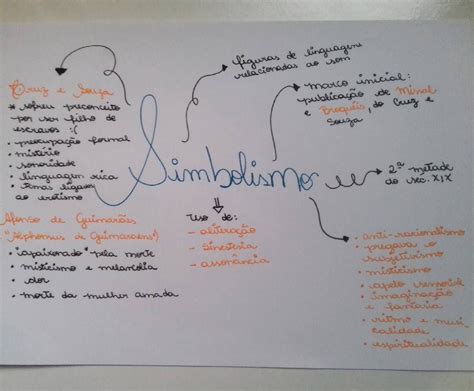 Cruz e Souza
* sofreu preconceito
por ser filho de
escravos :(
• preocupação formal
• mistério
• sonoridade
• linguagem rica
• temas ligados
ao erotismo
Afonso de Guimarães
"Alphonsus de Guimaraens")
• "apaixonado" pela morte
• misticismo e melancolia
• dor
• morte da mulher amada
Simbolismo
figuras de linguagem
relacionadas ao som
marco inicial:
publicação de Missal
e Broquéis, do Cruz e
Souza
2ª metade
do sec. XIX
uso de:
- aliteração
- sinestesia
- assonância
• anti-racionalismo
• pregava o
subjetivismo
• misticismo
• apelo sensorial
• imaginação
e fantasia
• ritmo e musi
calidade
• espiritualidade